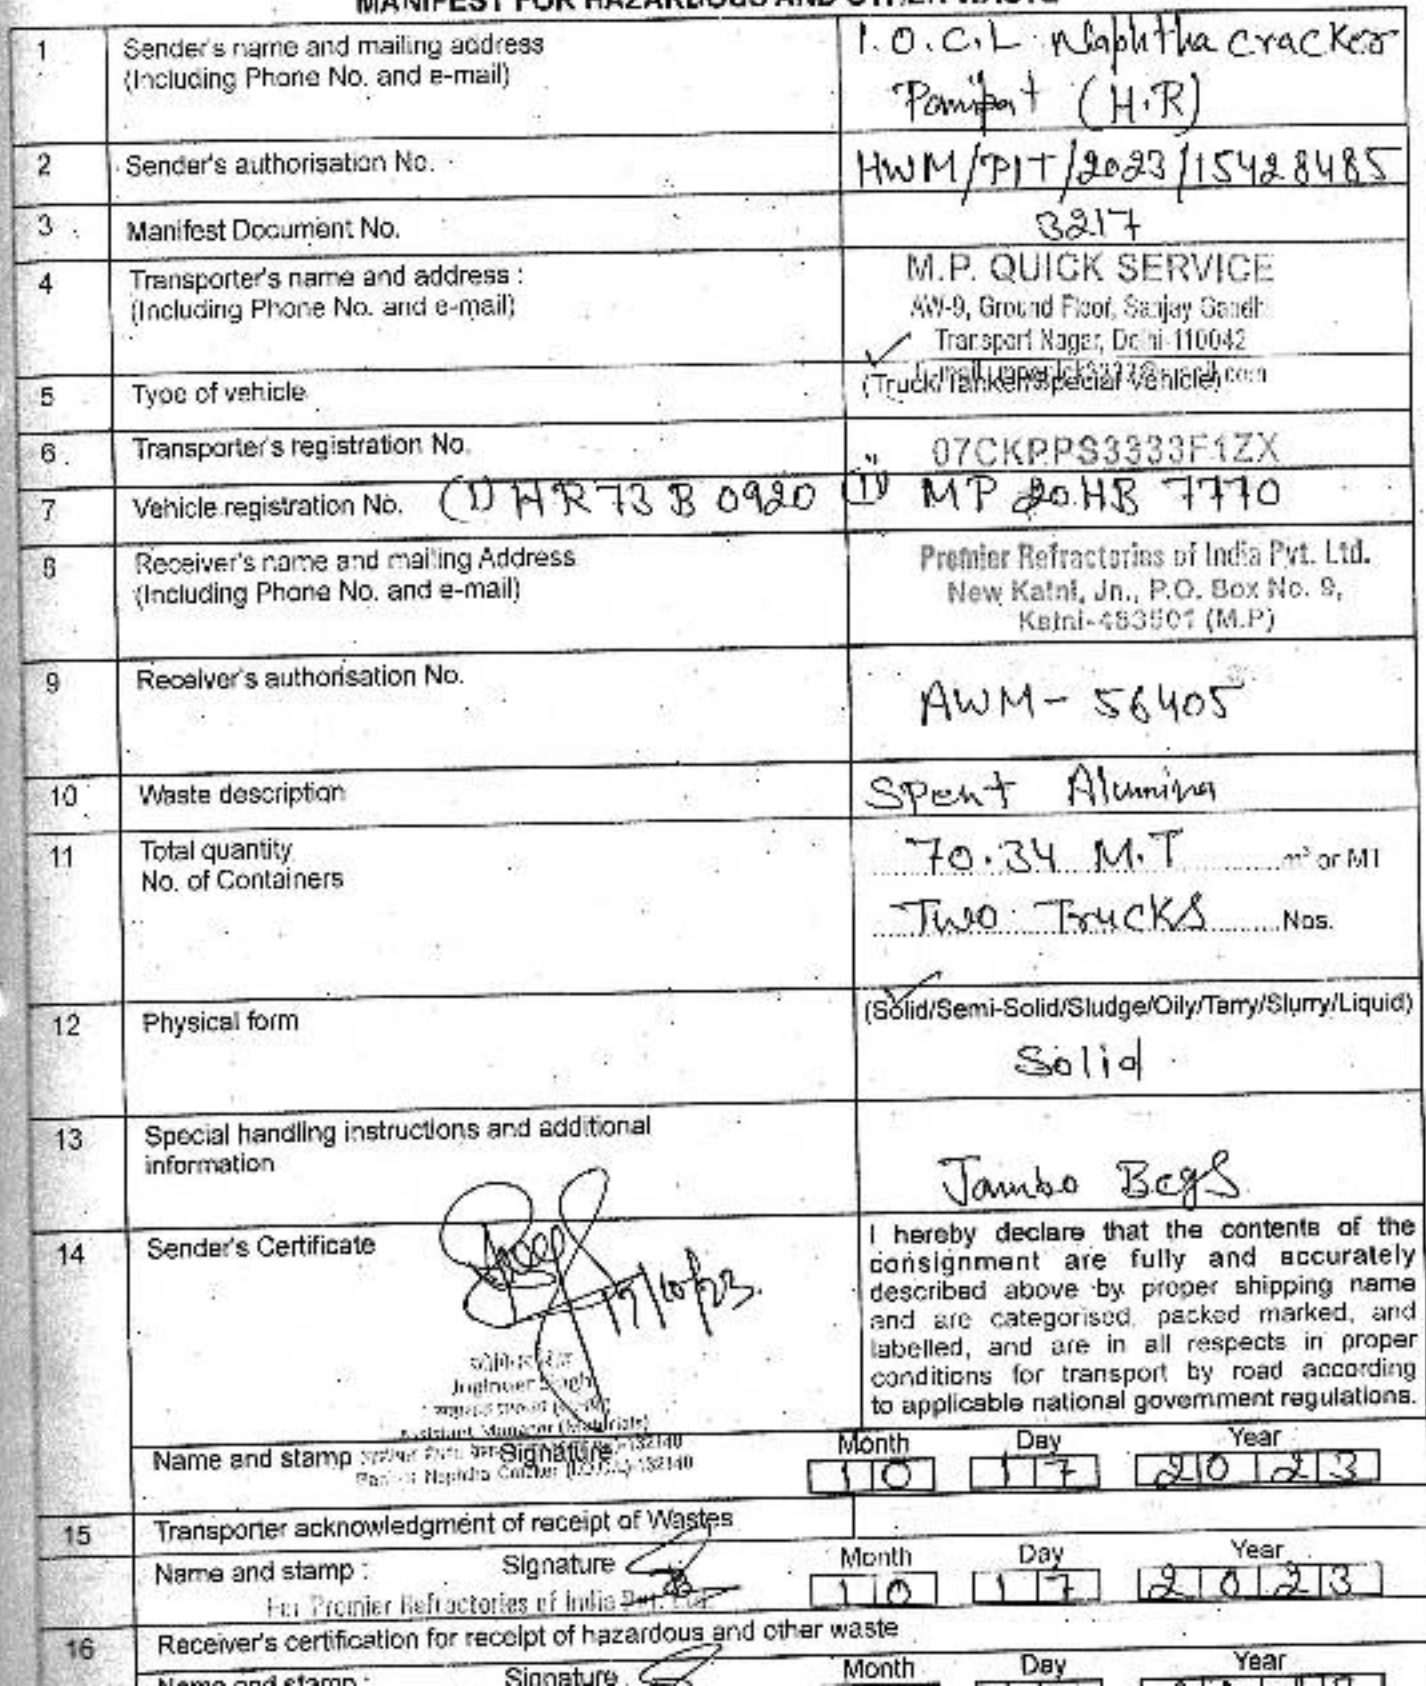 MANIFEST FOR HAZARDOUS AND OTHER WASTE
1 Sender's name and mailing address
(Including Phone No. and e-mail)
I.O.C.L Naphtha cracker
Panipat (H.R)
2 Sender's authorisation No.
HWM/PIT/2023/15428485
3 Manifest Document No.
3217
4 Transporter's name and address :
(Including Phone No. and e-mail)
M.P. QUICK SERVICE
AW-9, Ground Floor, Sanjay Gandhi
Transport Nagar, Delhi-110042
5 Type of vehicle
(Truck/Tanker/Special Vehicle)
6 Transporter's registration No.
07CKPPS3333F1ZX
7 Vehicle registration No. (1) HR 73 B 0920 (11) MP 20.HB 7770
8 Receiver's name and mailing Address
(Including Phone No. and e-mail)
Premier Refractories of India Pvt. Ltd.
New Katni, Jn., P.O. Box No. 9,
Katni-483501 (M.P)
9 Receiver's authorisation No.
AWM - 56405
10 Waste description
Spent Alumina
11 Total quantity
No. of Containers
70.34 M.T m³ or MT
Two Trucks Nos.
12 Physical form
(Solid/Semi-Solid/Sludge/Oily/Tarry/Slurry/Liquid)
Solid
13 Special handling instructions and additional
information
Jambo Begs
14 Sender's Certificate
17/10/23.
I hereby declare that the contents of the
consignment are fully and accurately
described above by proper shipping name
and are categorised, packed marked, and
labelled, and are in all respects in proper
conditions for transport by road according
to applicable national government regulations.
Joginder Singh
Assistant Manager (Materials)
Name and stamp Signature Month Day Year
10 17 2023
15 Transporter acknowledgment of receipt of Wastes
Name and stamp : Signature Month Day Year
10 17 2023
For Premier Refractories of India Pvt. Ltd.
16 Receiver's certification for receipt of hazardous and other waste
Name and stamp : Signature Month Day Year